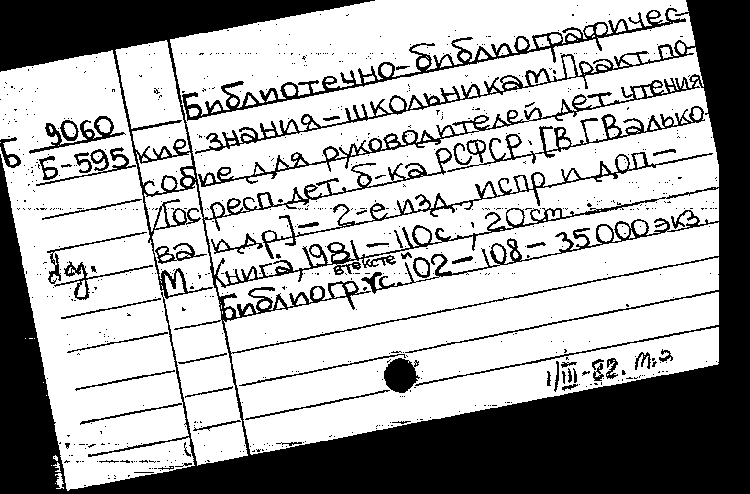 Библиотечно-библиографичес-
Б 9060
Б-595
кие знания-школьникам: Практ. по-
собие для руководителей дет. чтения
/Гос. респ. дет. б-ка РСФСР; [В.Г Валько
ва и др.] - 2-е изд., испр и доп -
М.: Книга, 1981 - 110с.; 20 ст.
Библиогр. в тексте и с. 102 - 108. - 35000 экз.
1/III-82.